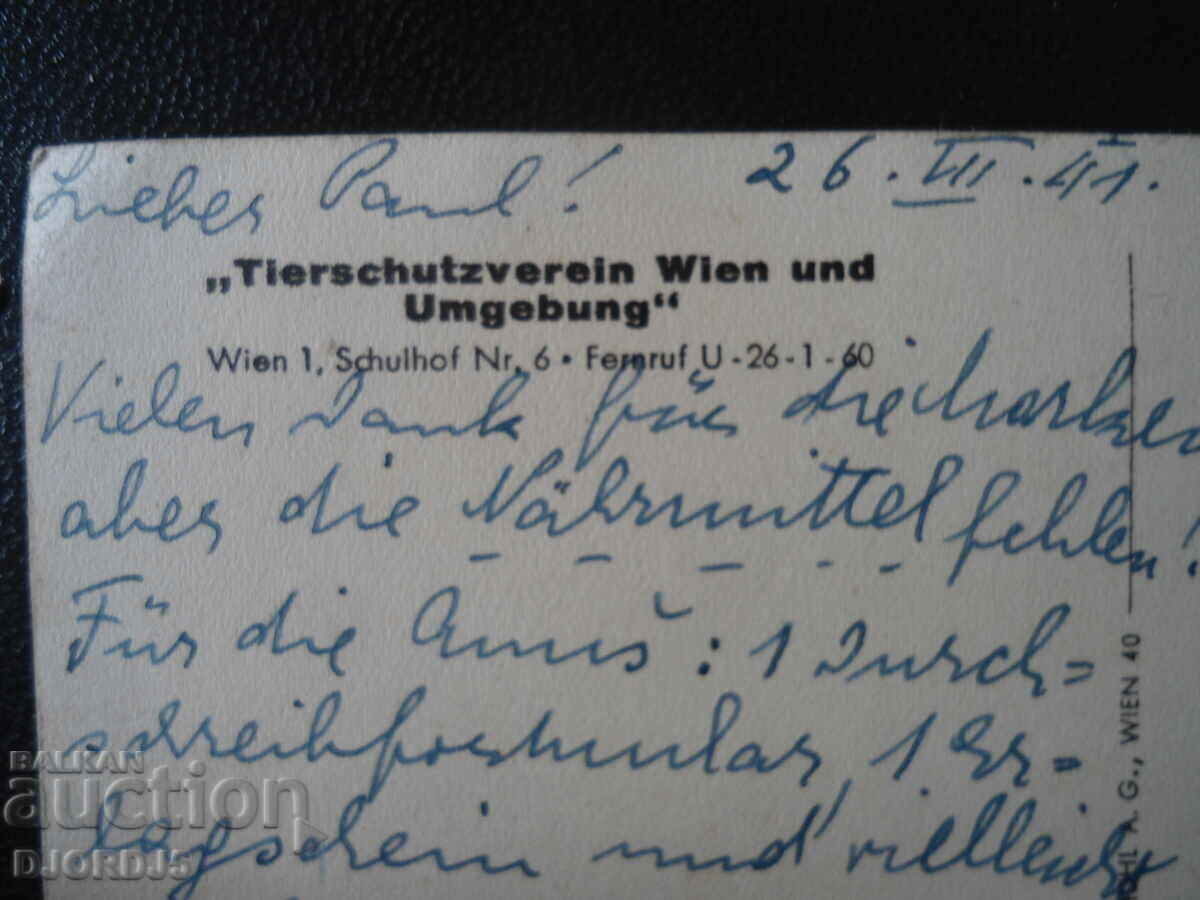 Lieber Paul! 26. VII. 41.
„Tierschutzverein Wien und
Umgebung“
Wien 1, Schulhof Nr. 6 • Fernruf U-26-1-60
Vielen Dank für die Marken
aber die Nährmittel fehlen!
Für die : 1 Durch=
schreibformular, 1 Er=
lagschein und vielleicht
A. G., WIEN 40
BALKAN
auction
DJORDJ5